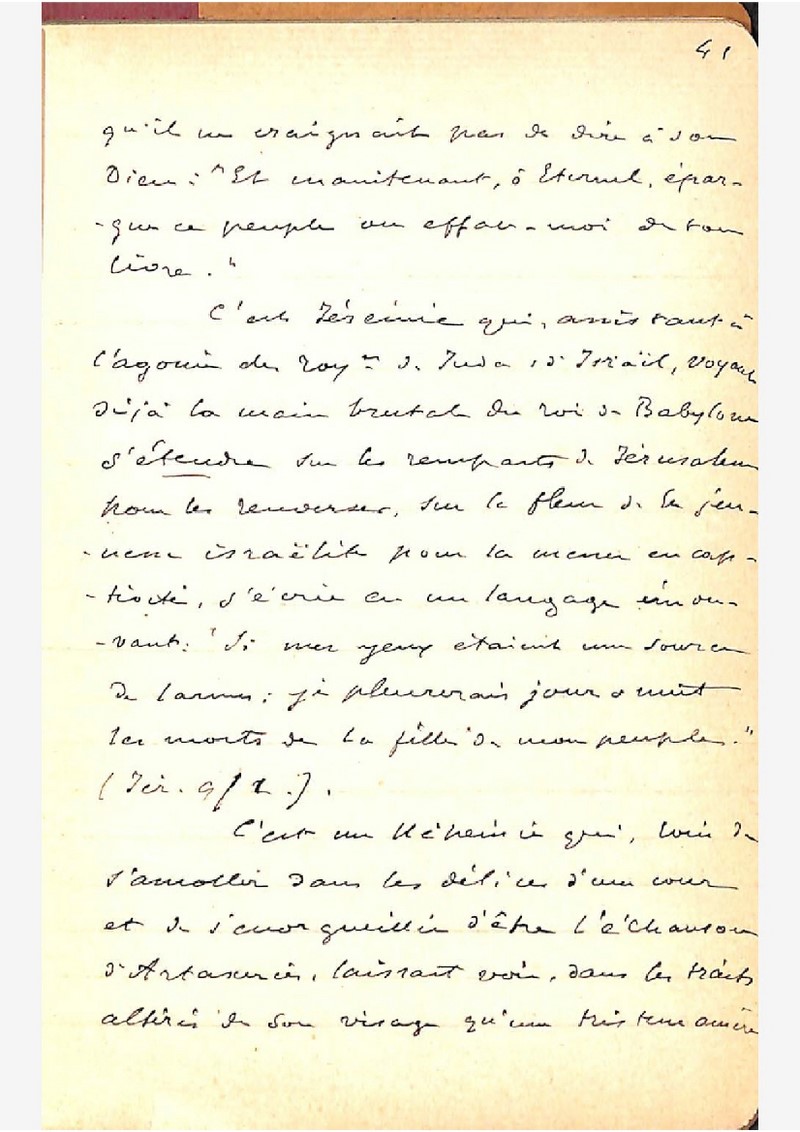 41
qu'il ne craignait pas de dire à son
Dieu : "Et maintenant, ô Eternel, épar-
-gne ce peuple ou efface-moi de ton
livre."
C'est Jérémie qui, assistant à
l'agonie des roy^mes de Juda et d'Israël, voyant
déjà la main brutale du roi de Babylone
s'étendre sur les remparts de Jérusalem
pour les renverser, sur la fleur de la jeu-
-nesse israëlite pour la mener en cap-
-tivité, s'écrie en un langage émou-
-vant: "Si mes yeux étaient une source
de larmes, je pleurerais jour & nuit
les morts de la fille de mon peuple."
(Jér. 9/1.).
C'est un Néhémie qui, loin de
s'amollir dans les délices d'une cour
et de s'enorgueillir d'être l'échanson
d'Artaxerxès, laissait voir, dans les traits
altérés de son visage qu'une tristesse amère